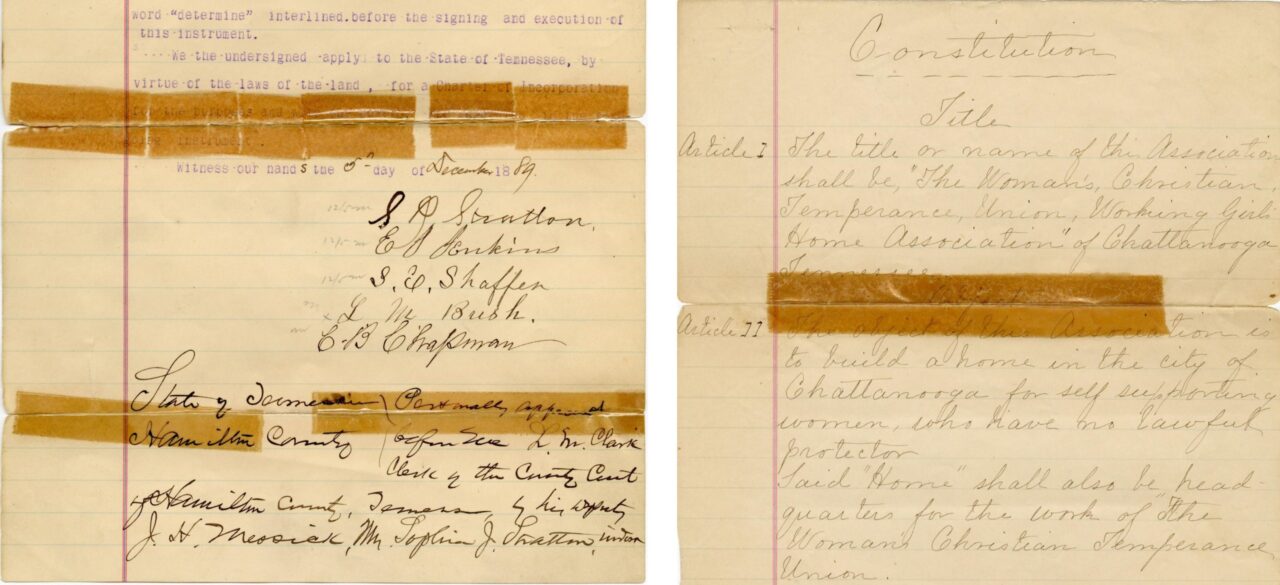 word "determine" interlined.before the signing and execution of
this instrument.
We the undersigned apply to the State of Tennessee, by
virtue of the laws of the land, for a Charter of Incorporation
for the purposes and
instrument.
Witness our hands the 5" day of December 1889.
S A Stratton.
E
S. E. Shaffer
L M Bush.
E. B Chapman
State of Tennessee } Personally appeared
Hamilton County } before me L. M. Clark
Clerk of the County Court
of Hamilton County, by his deputy
J. H. Messick, Mrs. Sophia J. Stratton,
Constitution
Title
Article I The title or name of this Association
shall be, "The Woman's, Christian,
Temperance, Union, Working Girls
Home Association" of Chattanooga
Tennessee.
Article II The object of this Association is
to build a home in the city of
Chattanooga for self supporting
women, who have no lawful
protector
Said "Home" shall also be head-
quarters for the work of "The
Woman's Christian Temperance
Union.